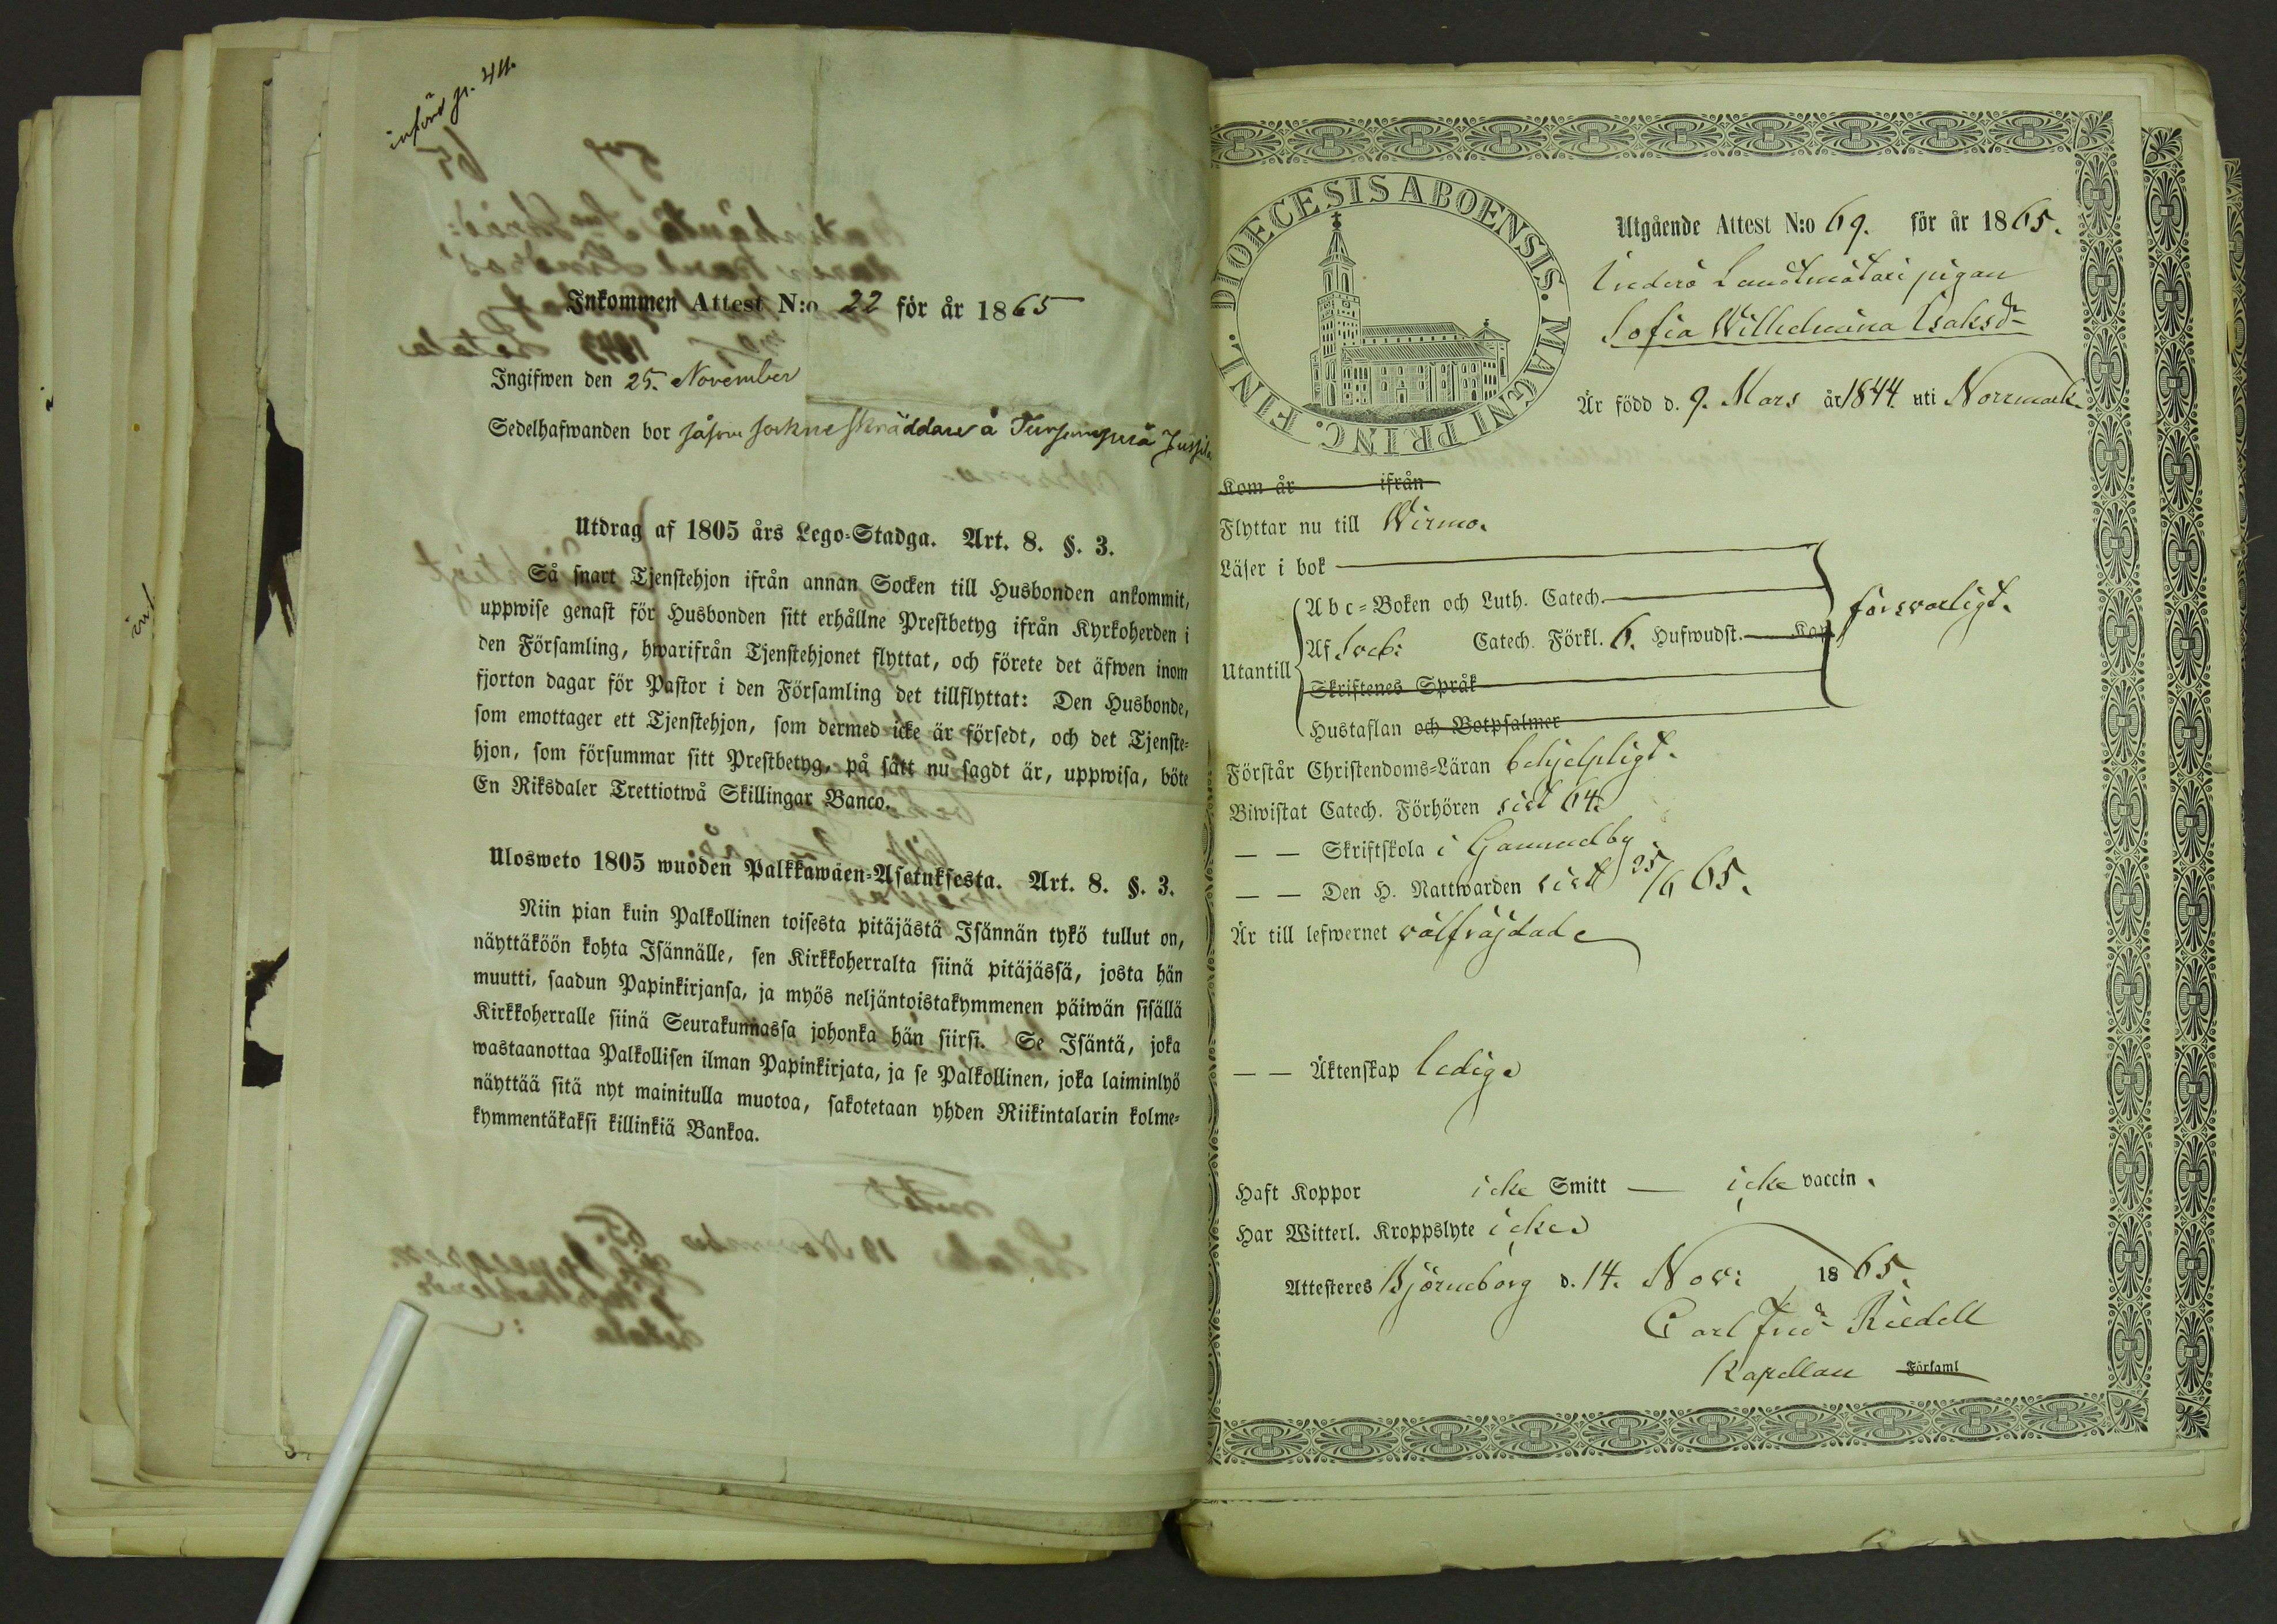 införd p. 411.
Inkommen Attest N:o 22 för år 1865
Ingifwen den 25. November
Sedelhafwanden bor såsom sockneskräddare å
Utdrag af 1805 års Lego-Stadga. Art. 8. §. 3.
Så snart Tjenstehjon ifrån annan Socken till Husbonden ankommit,
uppwise genast för Husbonden sitt erhållne Prestbetyg ifrån Kyrkoherden i
den Församling, hwarifrån Tjenstehjonet flyttat, och förete det äfwen inom
fjorton dagar för Pastor i den Församling det tillflyttat: Den Husbonde,
som emottager ett Tjenstehjon, som dermed icke är försedt, och det Tjenste-
hjon, som försummar sitt Prestbetyg, på sätt nu sagdt är, uppwisa, böte
En Riksdaler Trettiotwå Skillingar Banco.
Ulosweto 1805 wuoden Palkkawäen-Asetuksesta. Art. 8. §. 3.
Niin pian kuin Palkollinen toisesta pitäjästä Isännän tykö tullut on,
näyttäköön kohta Isännälle, sen Kirkkoherralta siinä pitäjässä, josta hän
muutti, saadun Papinkirjansa, ja myös neljäntoistakymmenen päiwän sisällä
Kirkkoherralle siinä Seurakunnassa johonka hän siirsi. Se Isäntä, joka
wastaanottaa Palkollisen ilman Papinkirjata, ja se Palkollinen, joka laiminlyö
näyttää sitä nyt mainitulla muotoa, sakotetaan yhden Riikintalarin kolme-
kymmentäkaksi killinkiä Bankoa.
DIOECESIS ABOENSIS. MAGNI PRINC. FINL.
Utgående Attest N:o 69. för år 1865.
Landtmätari pigan
Sofia Willhelmina Isaksdr
Är född d. 9. Mars år 1844. uti Norrmark.
Kom år ifrån
Flyttar nu till Wirmo.
Läser i bok
Utantill
Abc-Boken och Luth. Catech.
försvarligt.
Af Sveb: Catech. Förkl. 6. Hufwudst. Kap.
Skriftenes Språk
Hustaflan och Botpsalmer
Förstår Christendoms-Läran behjelpligt.
Biwistat Catech. Förhören sist 64.
— — Skriftskola i Gammelby
— — Den H. Nattwarden sist 25/6 65.
Är till lefwernet välfräjdade
— — Äktenskap ledig
Haft Koppor icke Smitt — icke vaccin.
Har Witterl. Kroppslyte icke
Attesteres Björneborg d. 14. Nov: 1865.
Carl Fredr Riedell
Kapellan Församl